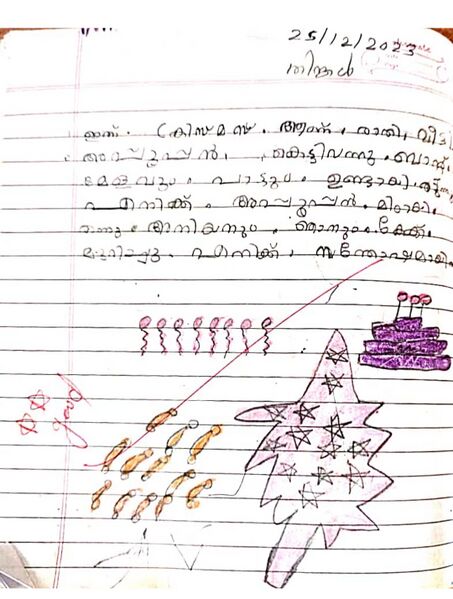 25/12/2023
തിങ്കൾ
ഇന്ന്. ക്രിസ്മസ്. ആണ്. രാത്രി വീട്ടി
അപ്പൂപ്പൻ. കെട്ടിവന്നു. ബാന്റ്
മേളവും പാട്ടും ഉണ്ടായി
എനിക്ക് അപ്പൂപ്പൻ. മിഠായി
തന്നു. അനിയനും ഞാനും കേക്ക്
മുറിച്ചു. എനിക്ക് സന്തോഷമായി
good